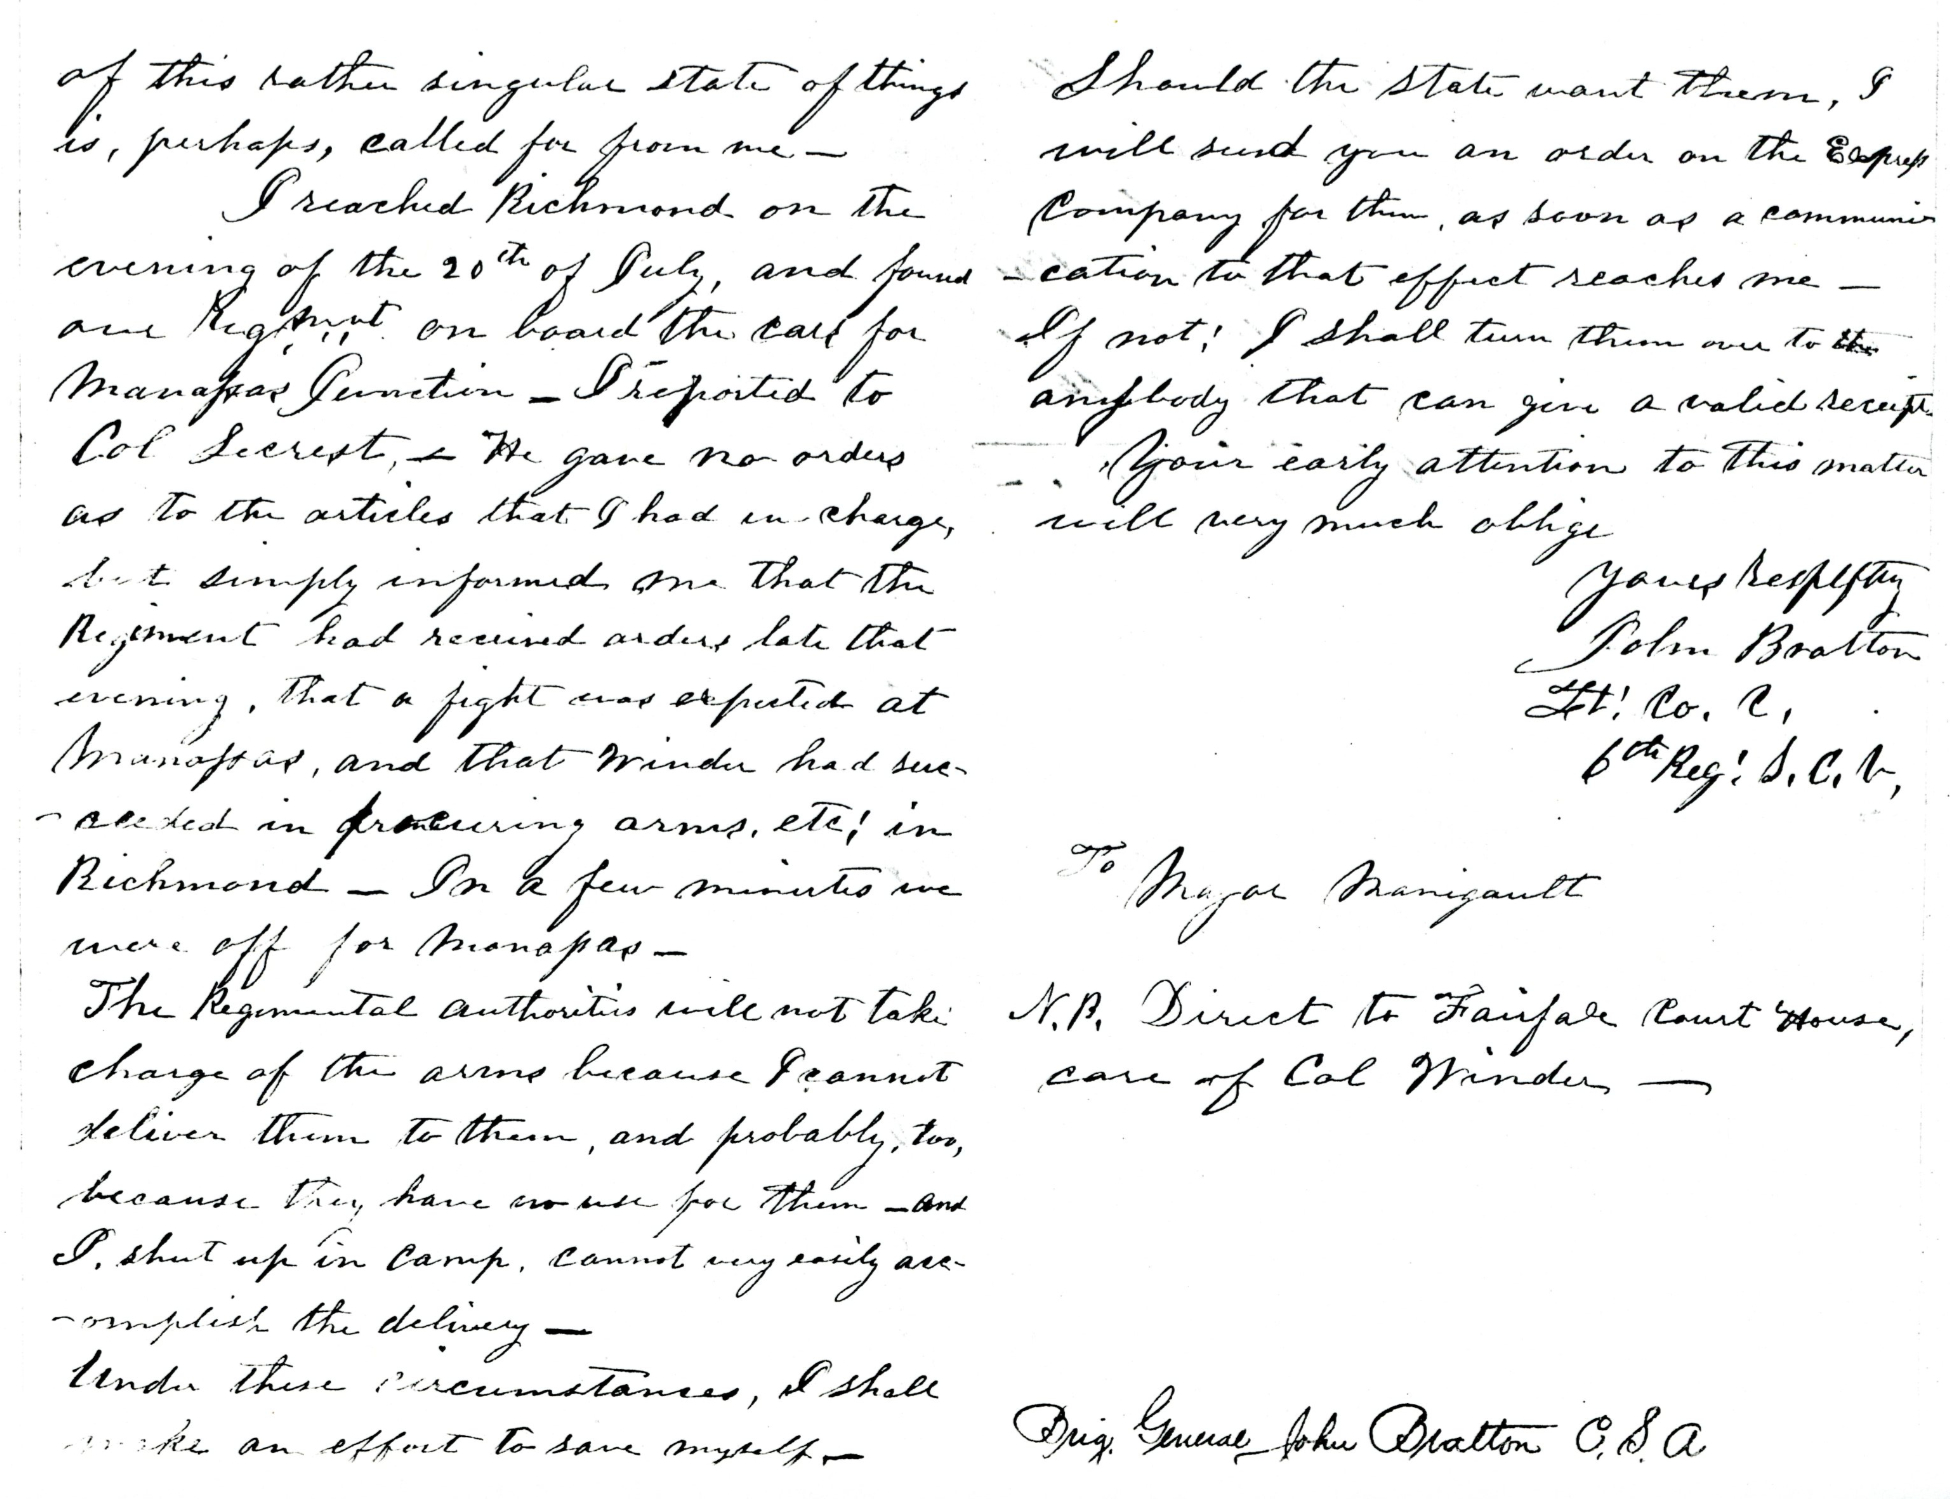 of this rather singular state of things
is, perhaps, called for from me —
I reached Richmond on the
evening of the 20th of July, and found
our Regiment on board the cars for
Manassas Junction — I reported to
Col Secrest, — He gave no orders
as to the articles that I had in charge,
but simply informed me that the
Regiment had received orders late that
evening, that a fight was expected at
Manassas, and that Winder had suc-
-ceeded in procuring arms, etc! in
Richmond — In a few minutes we
were off for Manassas —
The Regimental authorities will not take
charge of the arms because I cannot
deliver them to them, and probably, too,
because they have no use for them — and
I, shut up in camp, cannot very easily acc-
-omplish the delivery —
Under these circumstances, I shall
make an effort to save myself. —
Should the State want them, I
will send you an order on the Express
Company for them, as soon as a communi
-cation to that effect reaches me —
If not! I shall turn them over to the
anybody that can give a valid receipt.
Your early attention to this matter
will very much oblige
Yours Respectfly
John Bratton
Lt! Co. C,
6th Reg! S. C. V,
To
Major Manigault
N.B. Direct to Fairfax Court House,
care of Col Winder —
Brig. General John Bratton C. S. A